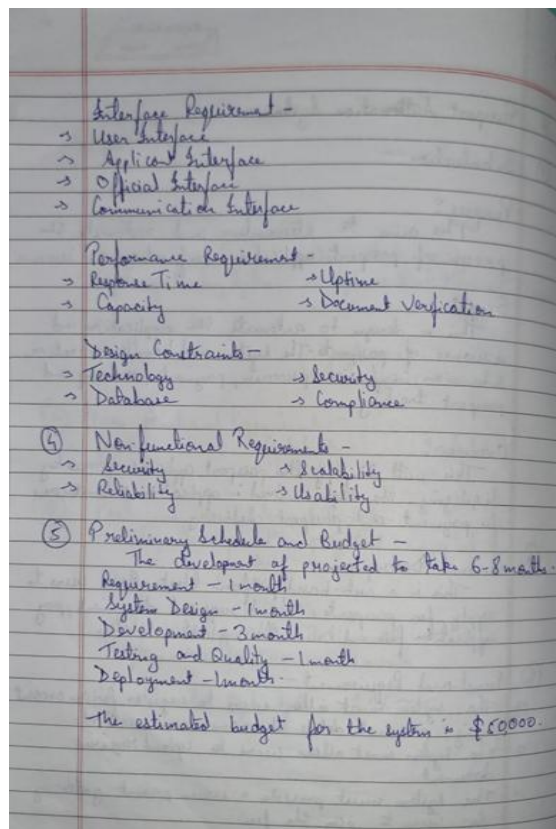 Interface Requirement -
→ User Interface
→ Applicant Interface
→ Official Interface
→ Communication Interface
Performance Requirement -
→ Response Time → Uptime
→ Capacity → Document Verification
Design Constraints -
→ Technology → Security
→ Database → Compliance
④ Non-functional Requirements -
→ Security → Scalability
→ Reliability → Usability
⑤ Preliminary Schedule and Budget -
The development of projected to take 6-8 months.
Requirement - 1 month
System Design - 1 month
Development - 3 month
Testing and Quality - 1 month
Deployment - 1 month.
The estimated budget for the system is